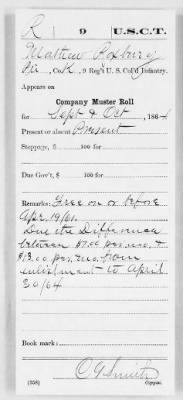 R | 9 | U.S.C.T.
Mathew Roxbury
Pvt, Co. K, 9 Reg't U. S. Col'd Infantry.
Appears on
Company Muster Roll
for Sept & Oct, 1864
Present or absent Present
Stoppage, $ 100 for
Due Gov't, $ 100 for
Remarks: Free on or before
Apr. 19/61.
Due the Difference
between $7.00 per mo. &
$13.00 per mo. from
enlistment to April
30/64
Book mark:
C G Smith
(358) Copyist.